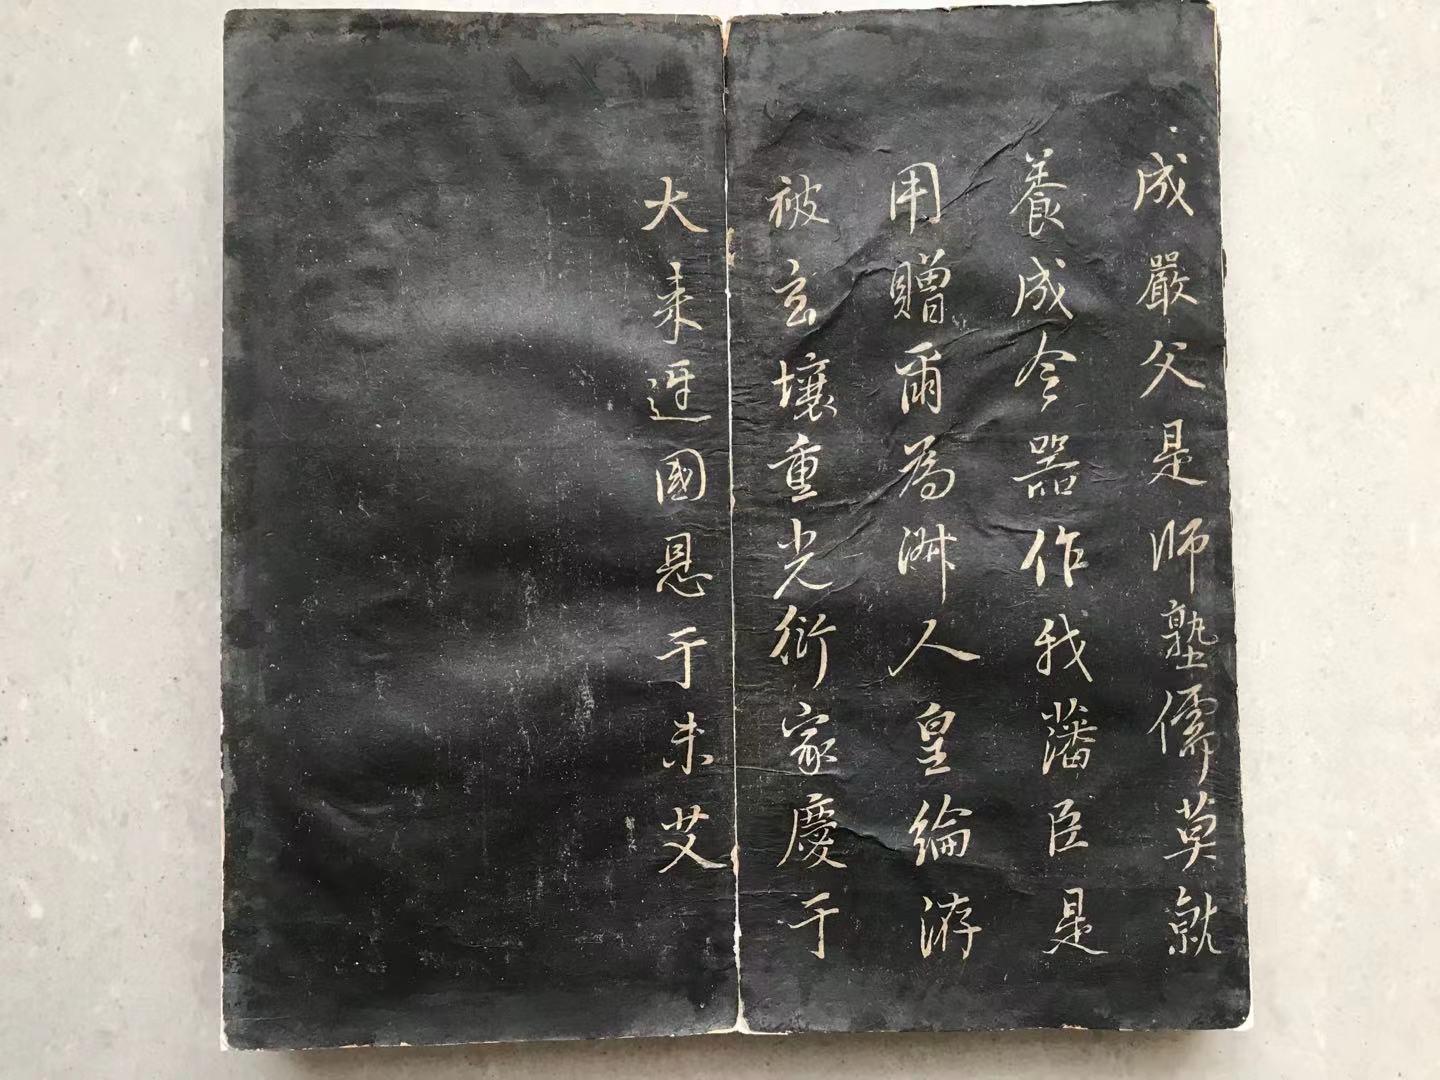 成嚴父是師塾儒莫就
養成令器作我藩臣是
用贈爾為淋人皇綸游
被玄壤重光衍家慶于
大来迓國恩于未艾